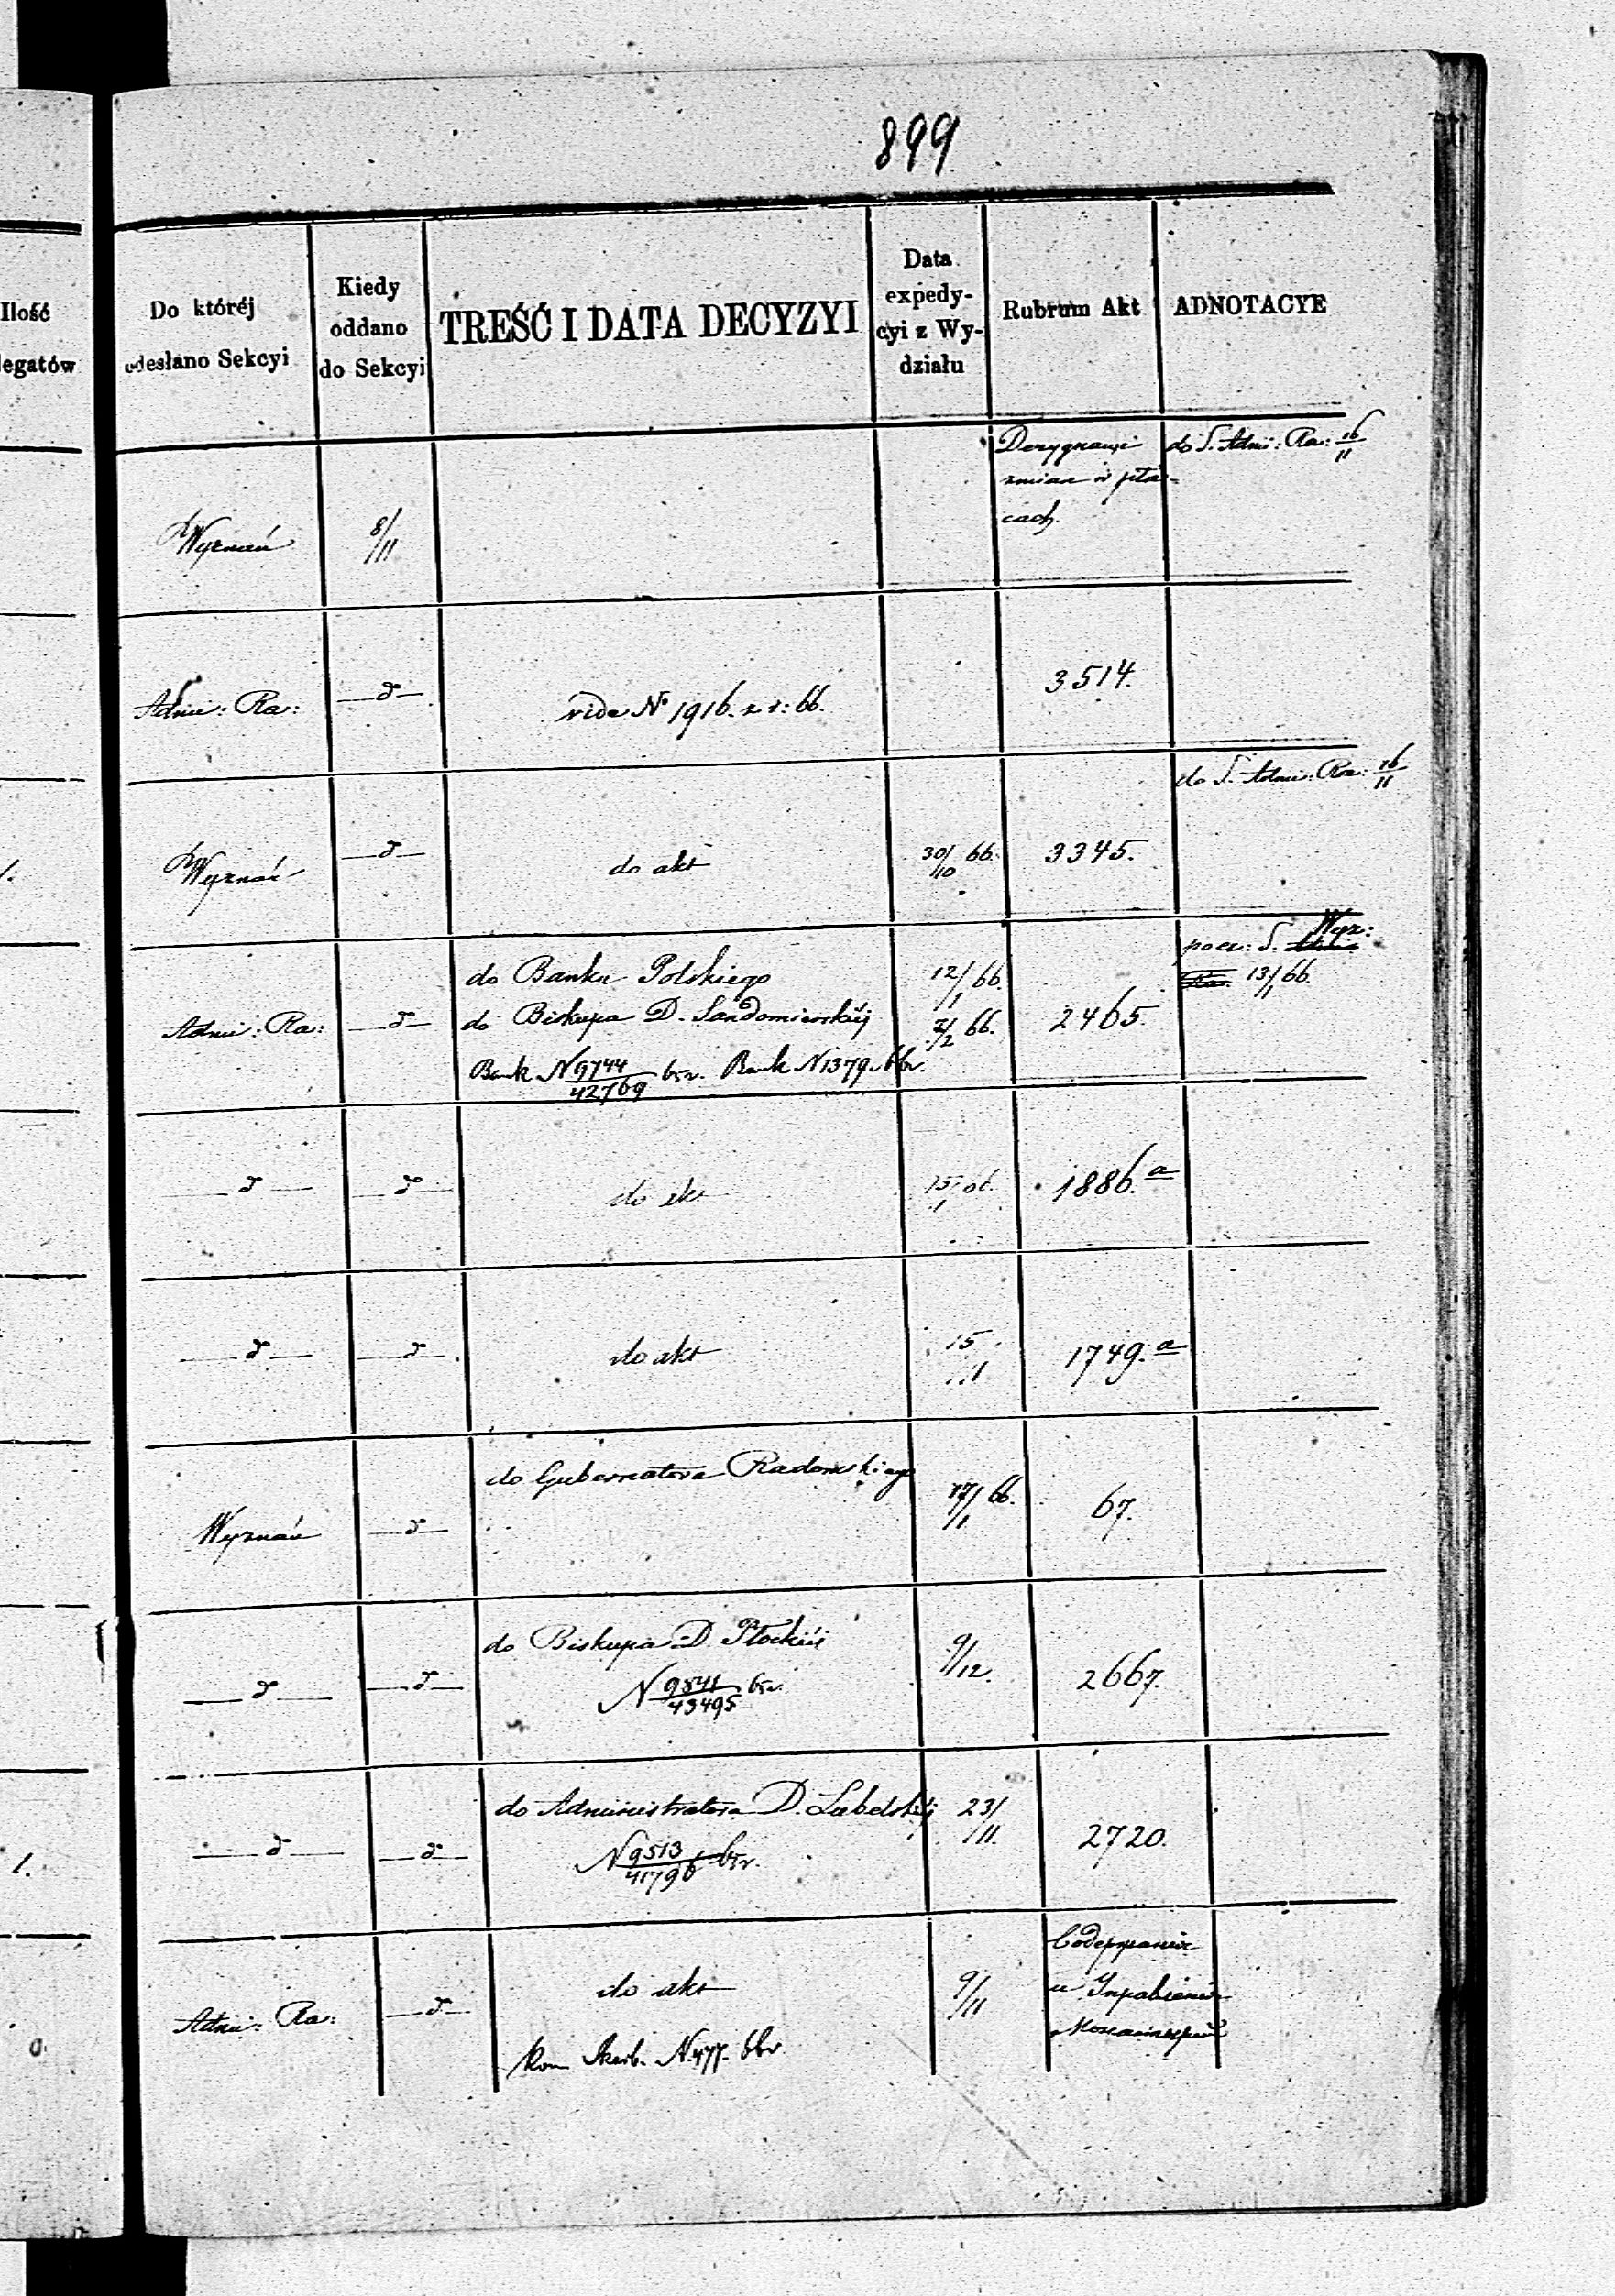 899
Ilość
legatów
Do któréj
odesłano Sekcyi
Kiedy
oddano
do Sekcyi
TREŚĆ I DATA DECYZYI
Data
expedy-
cyi z Wy-
działu
Rubrum Akt
ADNOTACYE
Wyznań
8/11
zmian w pła-
cach.
do S. Adm: Ra: 16/11
Adm: Ra:
—d—
vide No 1916. z r: 66.
3514.
Wyznań
—d—
do akt
30/10 66.
3345.
do S. Adm: Ra: 16/11
Adm: Ra:
—d—
do Banku Polskiego
do Biskupa D. Sandomierskiéj
Bank N 9744/42769 65r. Bank N 1379. 66r.
12/1 66.
2/2 66.
2465.
S. Wyz:
13/1 66.
—d—
—d—
do akt
15/1 66.
1886.a
—d—
—d—
do akt
15/1
1749.a
Wyznań
—d—
do Gubernatora Radomskiego
17/1 66.
67.
—d—
—d—
do Biskupa D. Płockiéj
N 9841/43495 65r.
9/12.
2667.
1.
—d—
—d—
do Administratora D. Lubelskiéj
N 9513/41796 65r.
23/11.
2720.
Adm: Ra:
—d—
do akt
Kom Skarb. N. 477. 66r
9/11